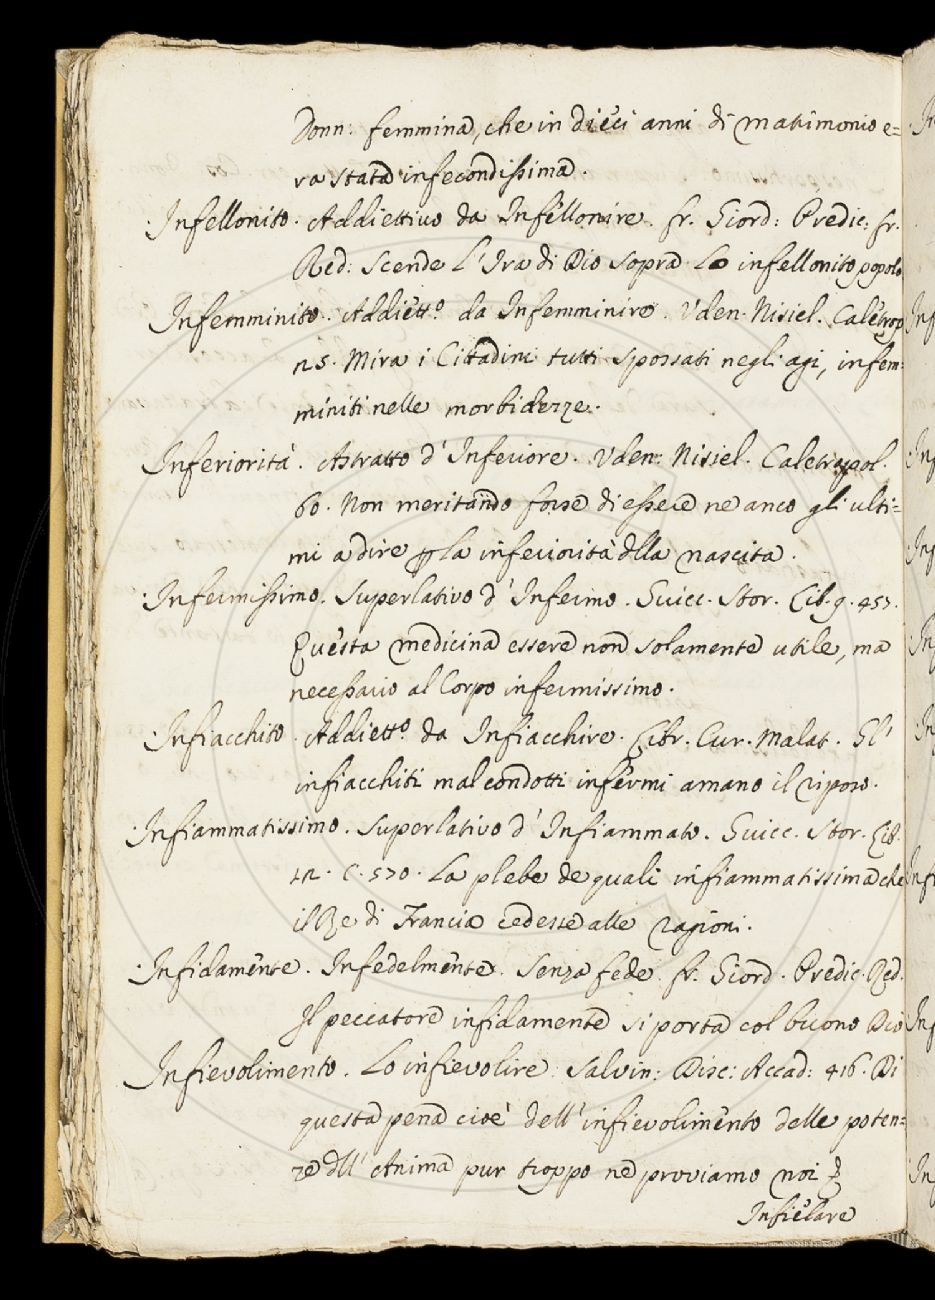 Donn: femmina, che in dieci anni di matrimonio e=
ra stata infecondissima.
Infellonito. Addiettivo da Infellonire. fr. Giord: Predic: fr.
Red: Scende l'Ira di Dio sopra lo infellonito popolo
Infemminito. Addiett.o da Infemminire. Uden. Nisiel. Caletrop
25. Mira i Cittadini tutti spossati negli agi, infem=
miniti nelle morbidezze.
Inferiorità. Astratto d'Inferiore. Uden: Nisiel. Caletropol.
60. Non meritando forse di essere ne anco gli ulti=
mi a dire la inferiorità dlla nascita.
Infermissimo. Superlativo d'Infermo. Guicc. Stor. Lib. 9. 457.
Questa medicina essere non solamente utile, ma
necessario al Corpo infermissimo.
Infiacchito. Addiett.o da Infiacchire. Libr. Cur. Malat. Gl'
infiacchiti mal condotti infermi amano il riposo.
Infiammatissimo. Superlativo d'Infiammato. Guicc. Stor. Lib.
12. C. 570. La plebe de quali infiammatissima che
il Re di Francia cedesse alle ragioni.
Infidamente. Infedelmente. Senza fede. fr. Giord. Predic. Red.
Il peccatore infidamente si porta col buono Dio
Infievolimento. Lo infievolire. Salvin: Disc: Accad: 416. Di
questa pena cioè dell'infievolimento delle poten=
ze dll'Anima pur troppo ne proviamo noi
Infielare